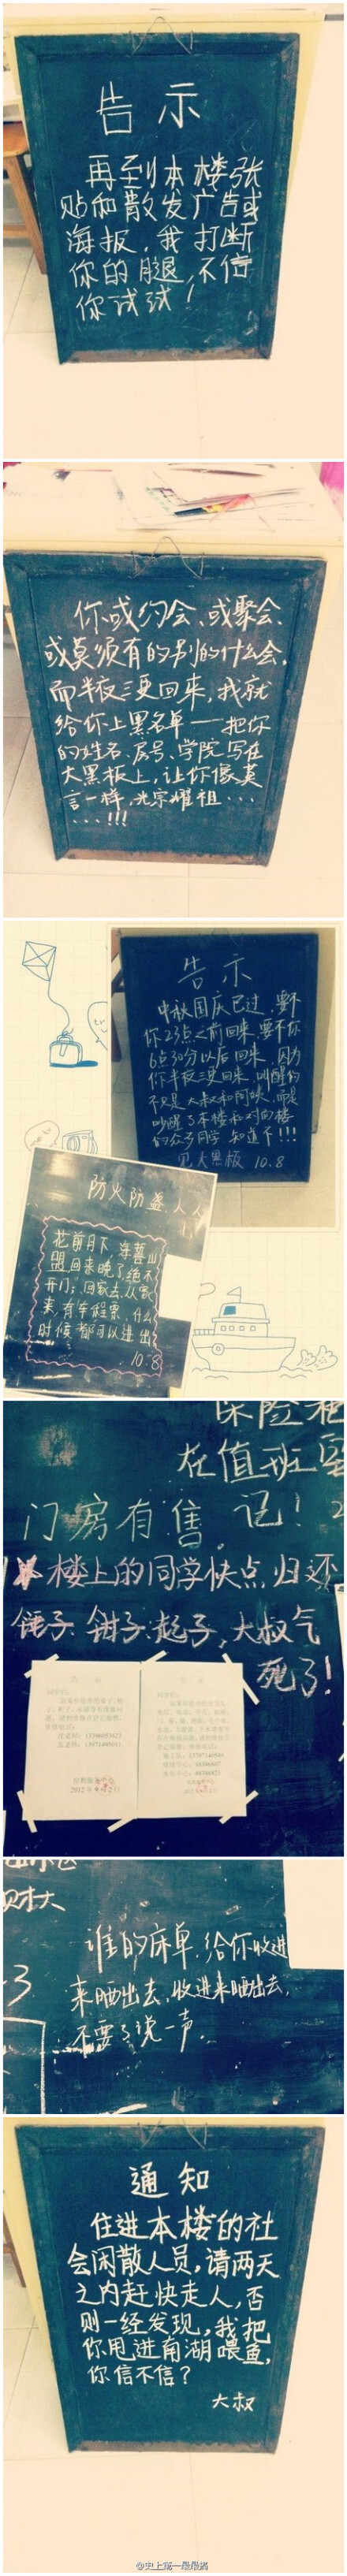 告示
再到本楼张
贴和散发广告或
海报，我打断
你的腿，不信
你试试！
你或约会、或聚会、
或莫须有的别的什么会，
而半夜三更回来，我就
给你上黑名单——把你
的姓名、房号、学院写在
大黑板上，让你像莫
言一样，光宗耀祖···
···!!!
告示
中秋国庆已过，要不
你23点之前回来，要不你
6点30分以后回来，因为
你半夜三更回来，叫醒的
不只是大叔和阿姨，而是
吵醒了本楼和对面楼
的众多同学，知道不!!!
见大黑板 10.8
防火防盗人人
花前月下，海誓山
盟，回来晚了，绝不
开门。回家去，从家
来，有车程票，什么
时候都可以进出
10-8
保险柜
在值班室
门房有售。记！
楼上的同学快点归还
锤子、钳子、起子，大叔气
死了！
告示
同学们：
2012年9月2日
告示
同学们：
谁的床单，给你收进
来晒出去，收进来晒出去，
不要了说一声。
通知
住进本楼的社
会闲散人员，请两天
之内赶快走人，否
则一经发现，我把
你甩进南湖喂鱼，
你信不信？
大叔
@史上第一最最搞